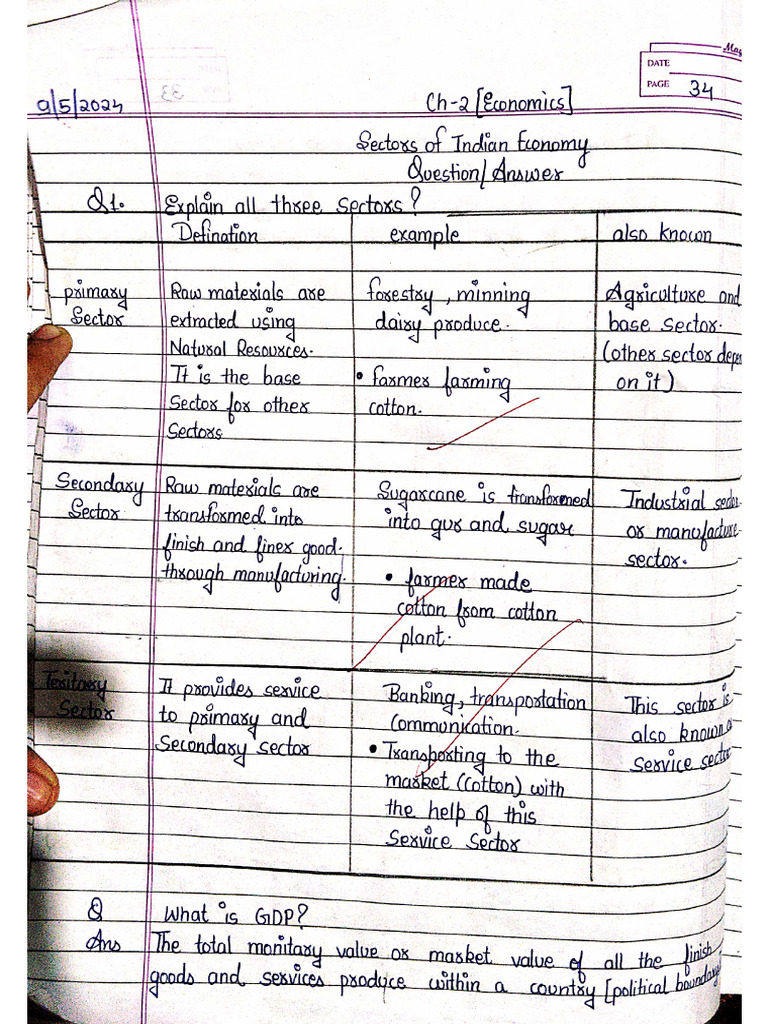 May
DATE
PAGE 34
9/5/2024
Ch-2 [Economics]
Sectors of Indian Economy
Question/Answer
Q1. Explain all three sectors?
Defination example also known
primary Raw materials are forestry, minning Agriculture and
Sector extracted using dairy produce. base sector.
Natural Resources. (other sector depen
It is the base • farmer farming on it)
Sector for other cotton.
Sectors
Secondary Raw materials are Sugarcane is transformed Industrial sector
Sector. transformed into into gur and sugar or manufacture
finish and finer good. sector.
through manufacturing. • farmer made
cotton from cotton
plant.
Teritary It provides service Banking, transportation This sector is
Sector to primary and Communication. also known a
Secondary sector • Transporting to the Service secto
market (cotton) with
the help of this
Service Sector
Q What is GDP?
Ans The total monitary value or market value of all the finish
goods and services produce within a country [political boundary